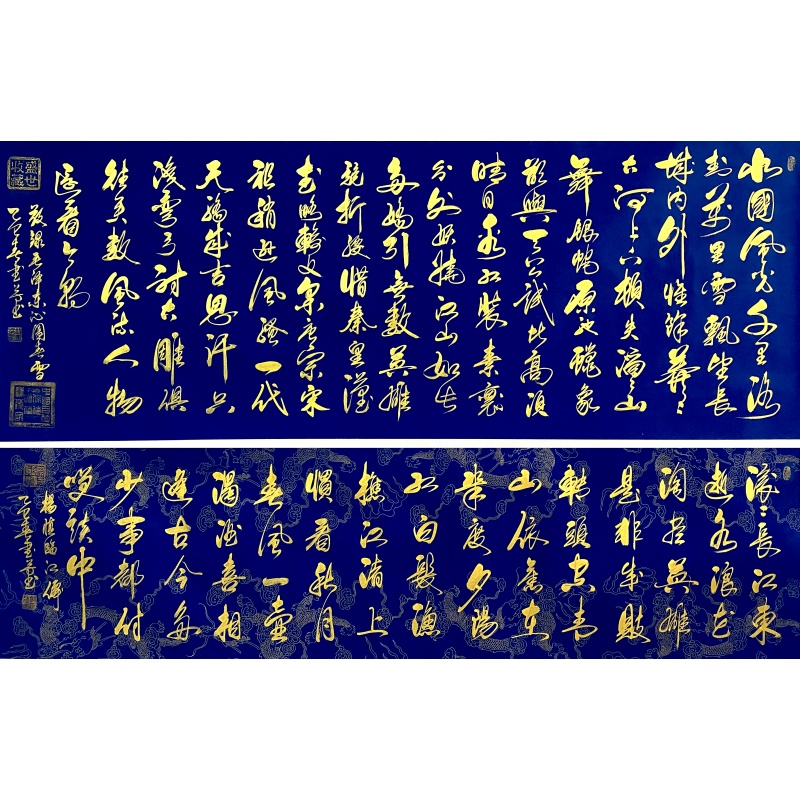 北國風光千里冰
封萬里雪飄望長
城内外惟餘莽〻
大河上下頓失滔〻山
舞銀蛇原馳蠟象
欲與天公試比高須
晴日看紅裝素裹
分外妖嬈江山如此
多嬌引無數英雄
競折腰惜秦皇漢
武略輸文采唐宗宋
祖稍遜風騷一代
天驕成吉思汗只
識彎弓射大雕俱
往矣數風流人物
還看今朝
敬錄毛澤東沁園春雪
盛世收藏
滾〻長江東
逝水浪花
淘盡英雄
是非成敗
轉頭空青
山依舊在
幾度夕陽
紅白髮漁
樵江渚上
慣看秋月
春風一壺
濁酒喜相
逢古今多
少事都付
笑談中
楊慎臨江仙